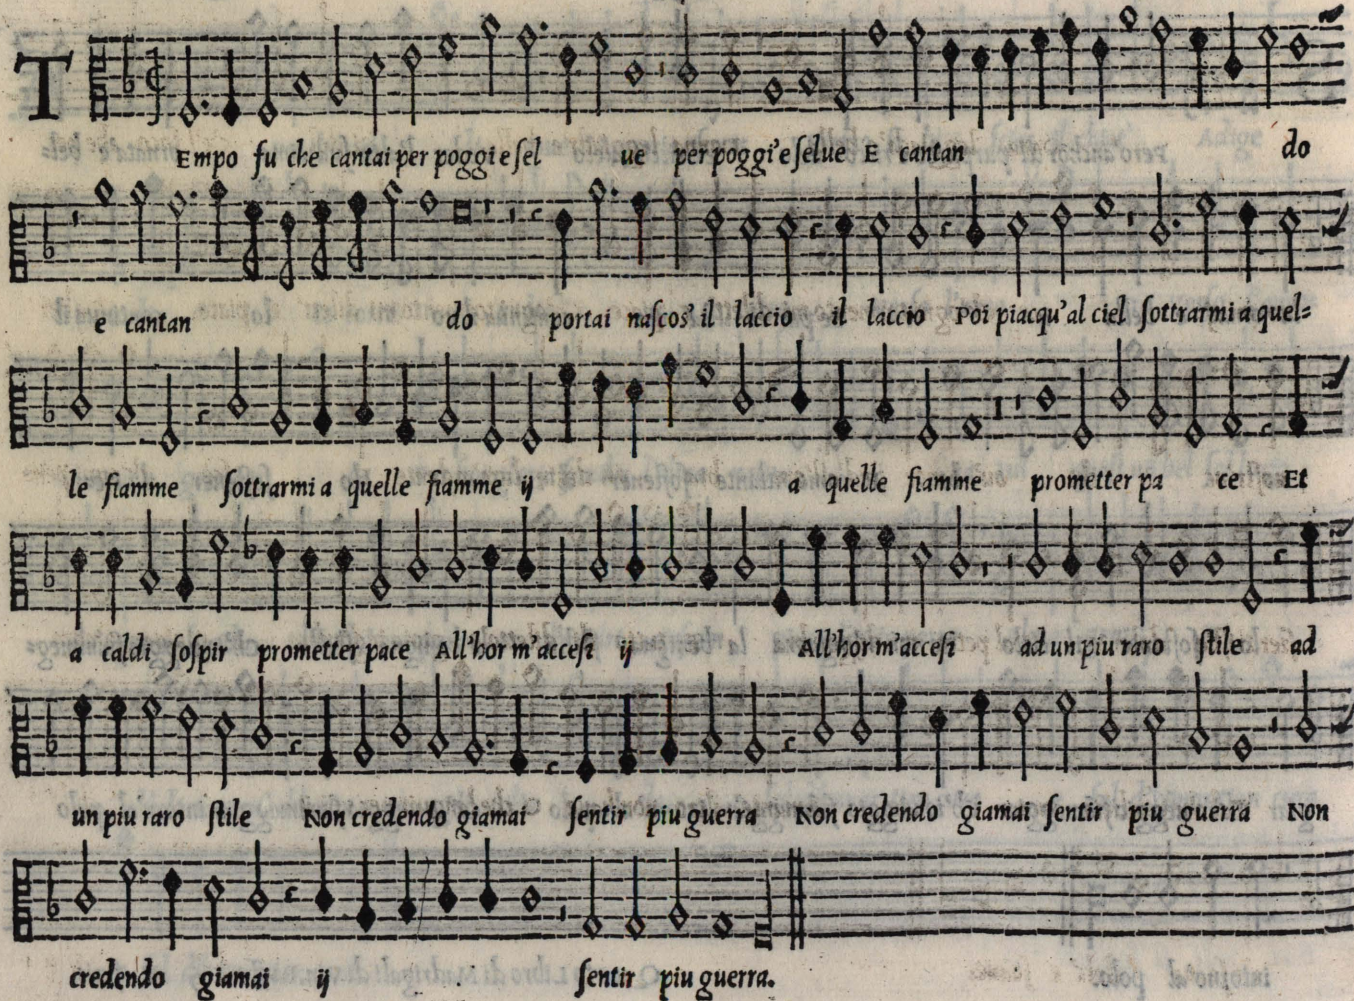 TEmpo fu che cantai per poggi e ſel ue per poggi'e ſelue E cantan do
e cantan do portai naſcos' il laccio il laccio Poi piacqu'al ciel ſottrarmi a quel=
le fiamme ſottrarmi a quelle fiamme ij a quelle fiamme prometter pa ce Et
a caldi ſoſpir prometter pace All'hor m'acceſi ij All'hor m'acceſi ad un piu raro ſtile ad
un piu raro ſtile Non credendo giamai ſentir piu guerra Non credendo giamai ſentir piu guerra Non
credendo giamai ij ſentir piu guerra.